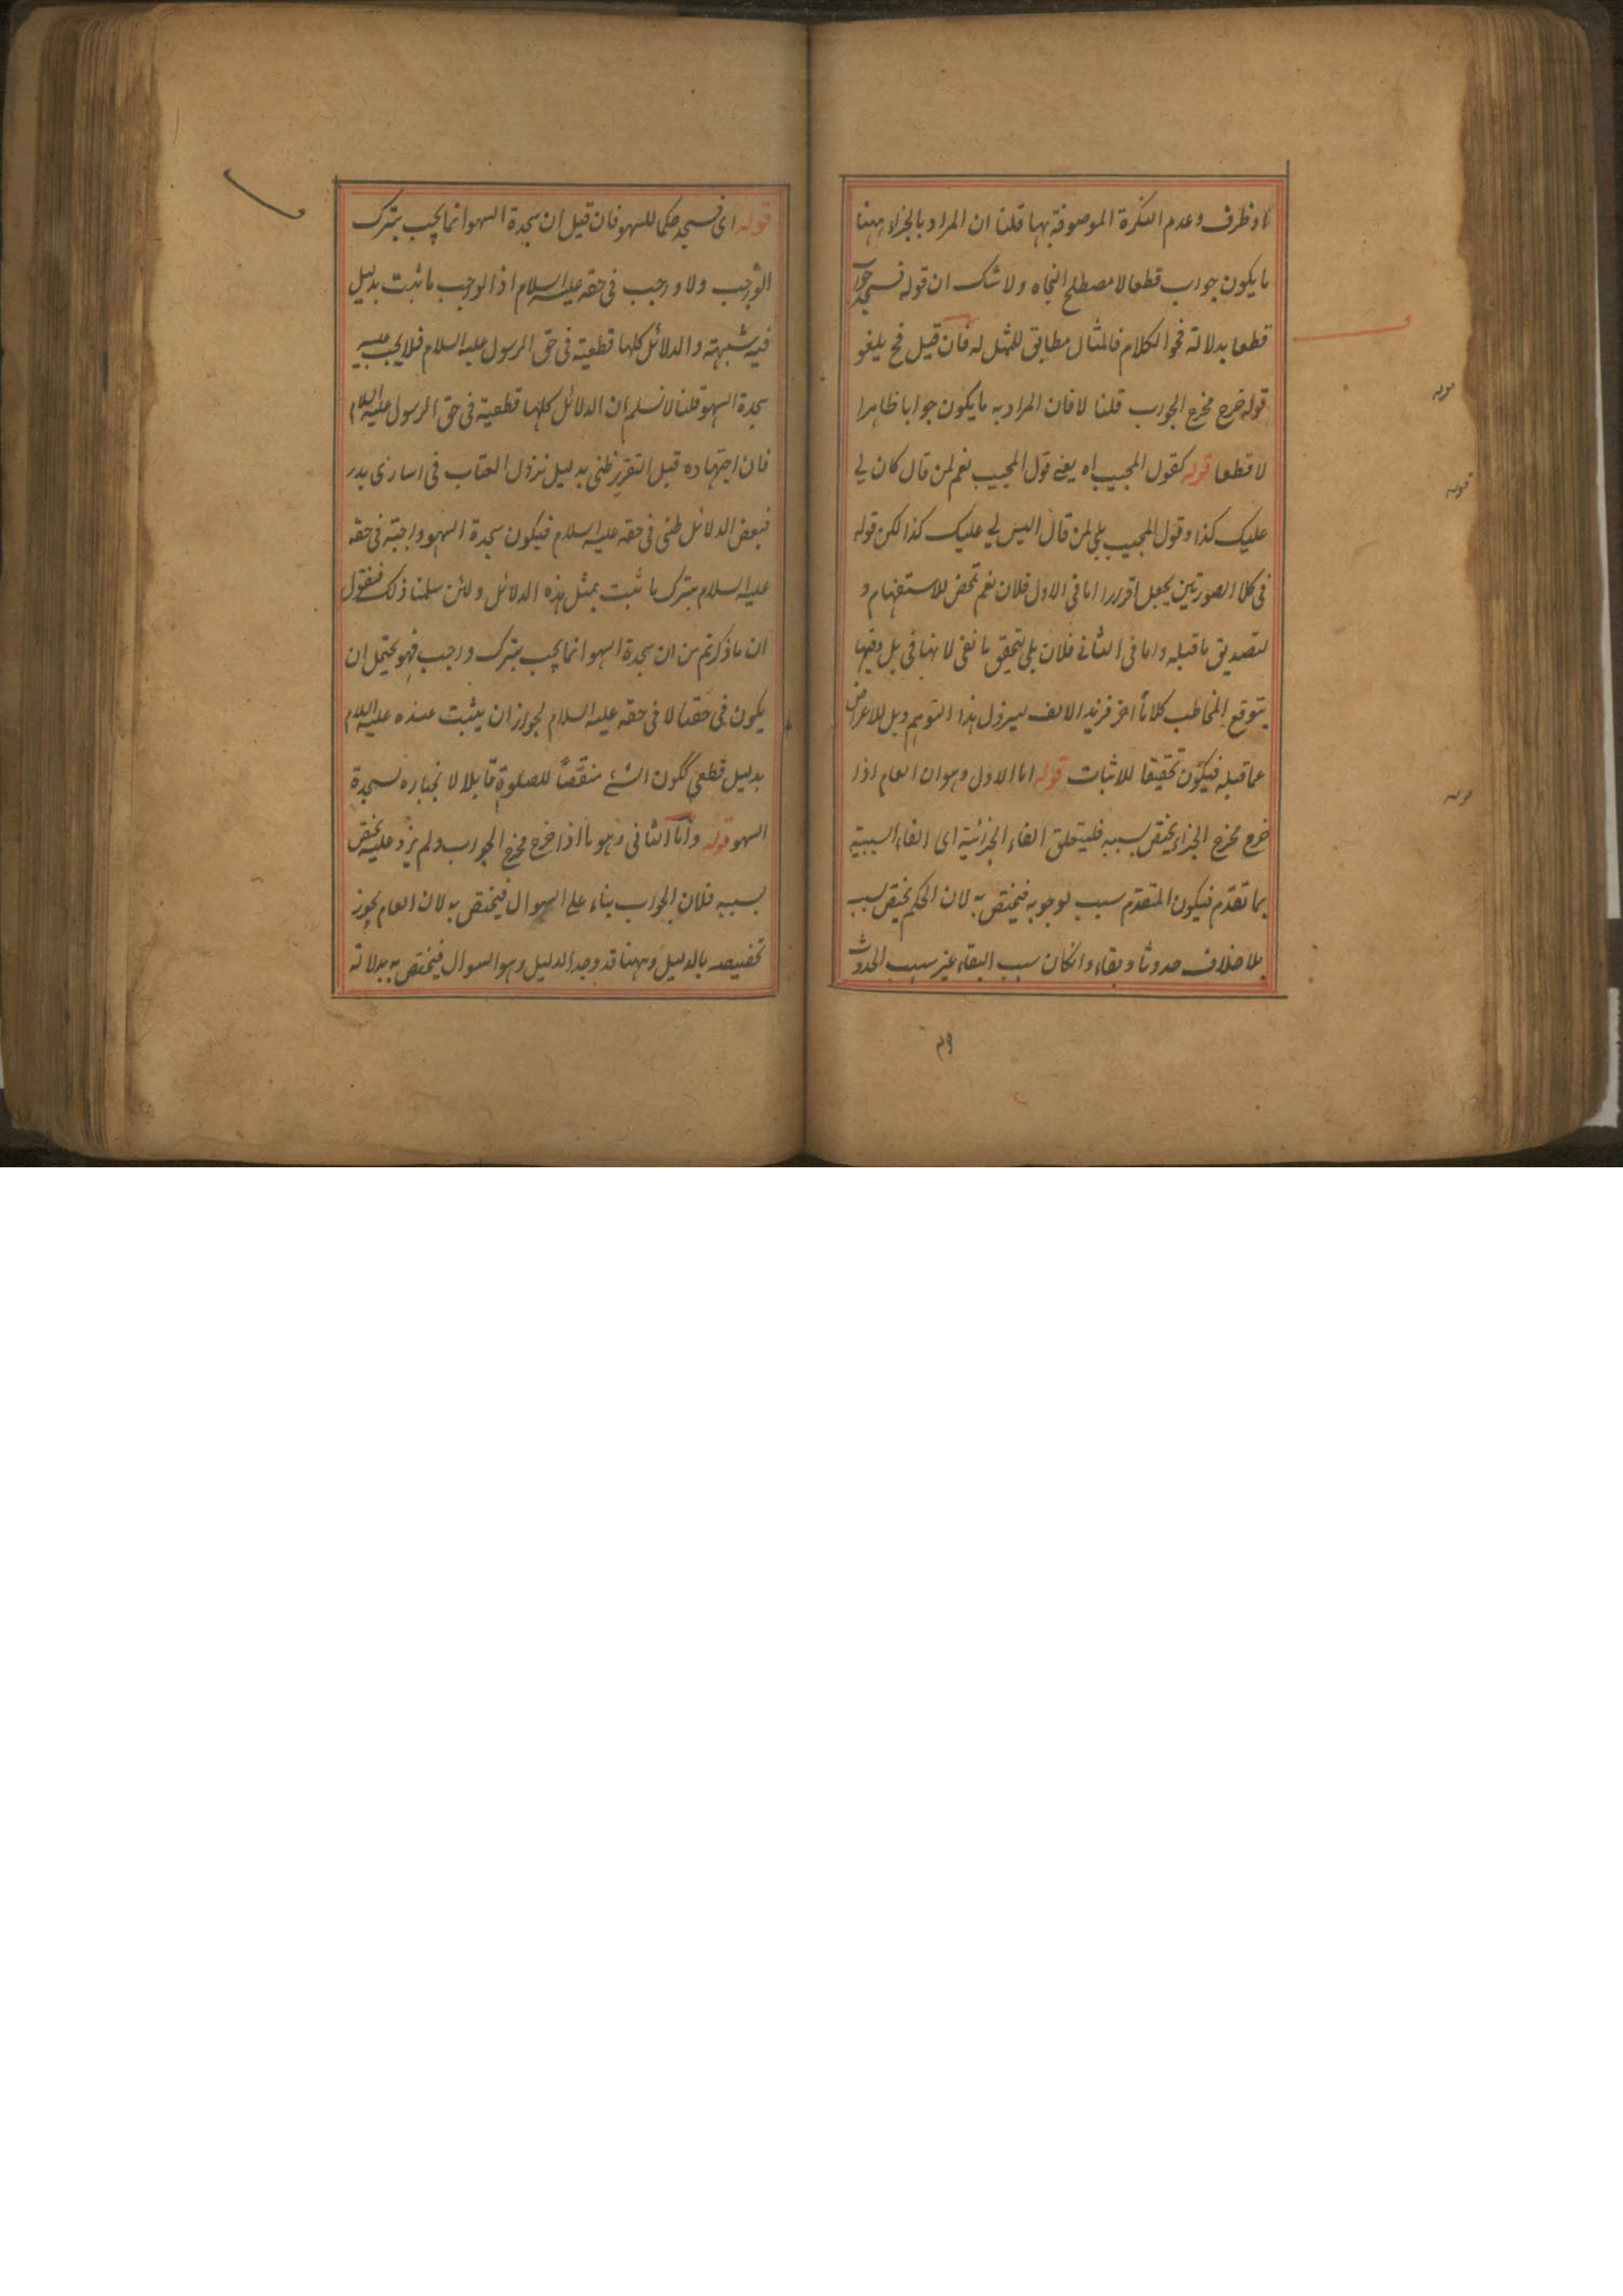 او ظرف وعدم النكرة الموصوفة بها قلنا ان المراد بالجزاء ههنا
ما يكون جواب قطعا لا مصطلح النحاه ولا شك ان قوله فسجد جواب
قطعا بدلالة فحوا الكلام فالمثال مطابق للممثل له فان قيل فح يلغو
قوله خرج مخرج الجواب قلنا لا فان المراد به ما يكون جوابا ظاهرا
لا قطعا قوله كقول المجيب اه يعني قول المجيب نعم لمن قال كان لي
عليك كذا وقول المجيب بلي لمن قال اليس لي عليك كذا لكن قوله
في كلا الصورتين يجعل اقرارا اما في الاول فلان نعم تمحض للاستفهام و
لتصديق ما قبله واما في الثاني فلان بلي لتحقيق ما نفي لانها في بل
يتوقع المخاطب كلاما اخر فزيد الالف ليزول هذا التوهم وبل للاعراض
عما قبله فيكون تحقيقا للاثبات قوله اما الاول وهو ان العام اذا
خرج مخرج الجزاء يختص بسببه فليتعلق الفاء الجزائية اى الفاء السببية
بما تقدم فيكون المتقدم سبب لوجوبه فيختص به لان الحكم يختص بسبب
بلا خلاف حدوثا وبقاء وانكان سبب البقاء غير سبب الحدوث
قوله
قوله
قوله
قوله اى فسجد حكما للسهو فان قيل ان سجدة السهو انما يجب بترك
الواجب ولا واجب في حقه عليه السلام اذ الواجب ما ثبت بدليل
فيه شبهته والدلائل كلها قطعيته في حق الرسول عليه السلام فلا يجب عليه
سجدة السهو قلنا لا نسلم ان الدلائل كلها قطعية في حق الرسول عليه السلام
فان اجتهاده قبل التقرير ظني بدليل نزول العتاب في اسارى بدر
فبعض الدلائل ظني في حقه عليه السلام فيكون سجدة السهو واجبة في حقه
عليه السلام بترك ما ثبت بمثل هذه الدلائل ولئن سلمنا ذلك فنقول
ان ما ذكرتم من ان سجدة السهو انما يجب بترك واجب فهو يحتمل ان
يكون في حقنا لا في حقه عليه السلام لجواز ان يثبت عنده عليه السلام
بدليل قطعي لكون الشئ منقصا للصلوة قابلا لانجباره لسجدة
السهو قوله واما الثاني وهو ما اذا خرج مخرج الجواب ولم يزد عليه يختص
بسببه فلان الجواب بناء على السوال فيختص به لان العام يجوز
تخصيصه بالدليل وههنا قد وجد الدليل وهو السوال فيختص به بدلالة